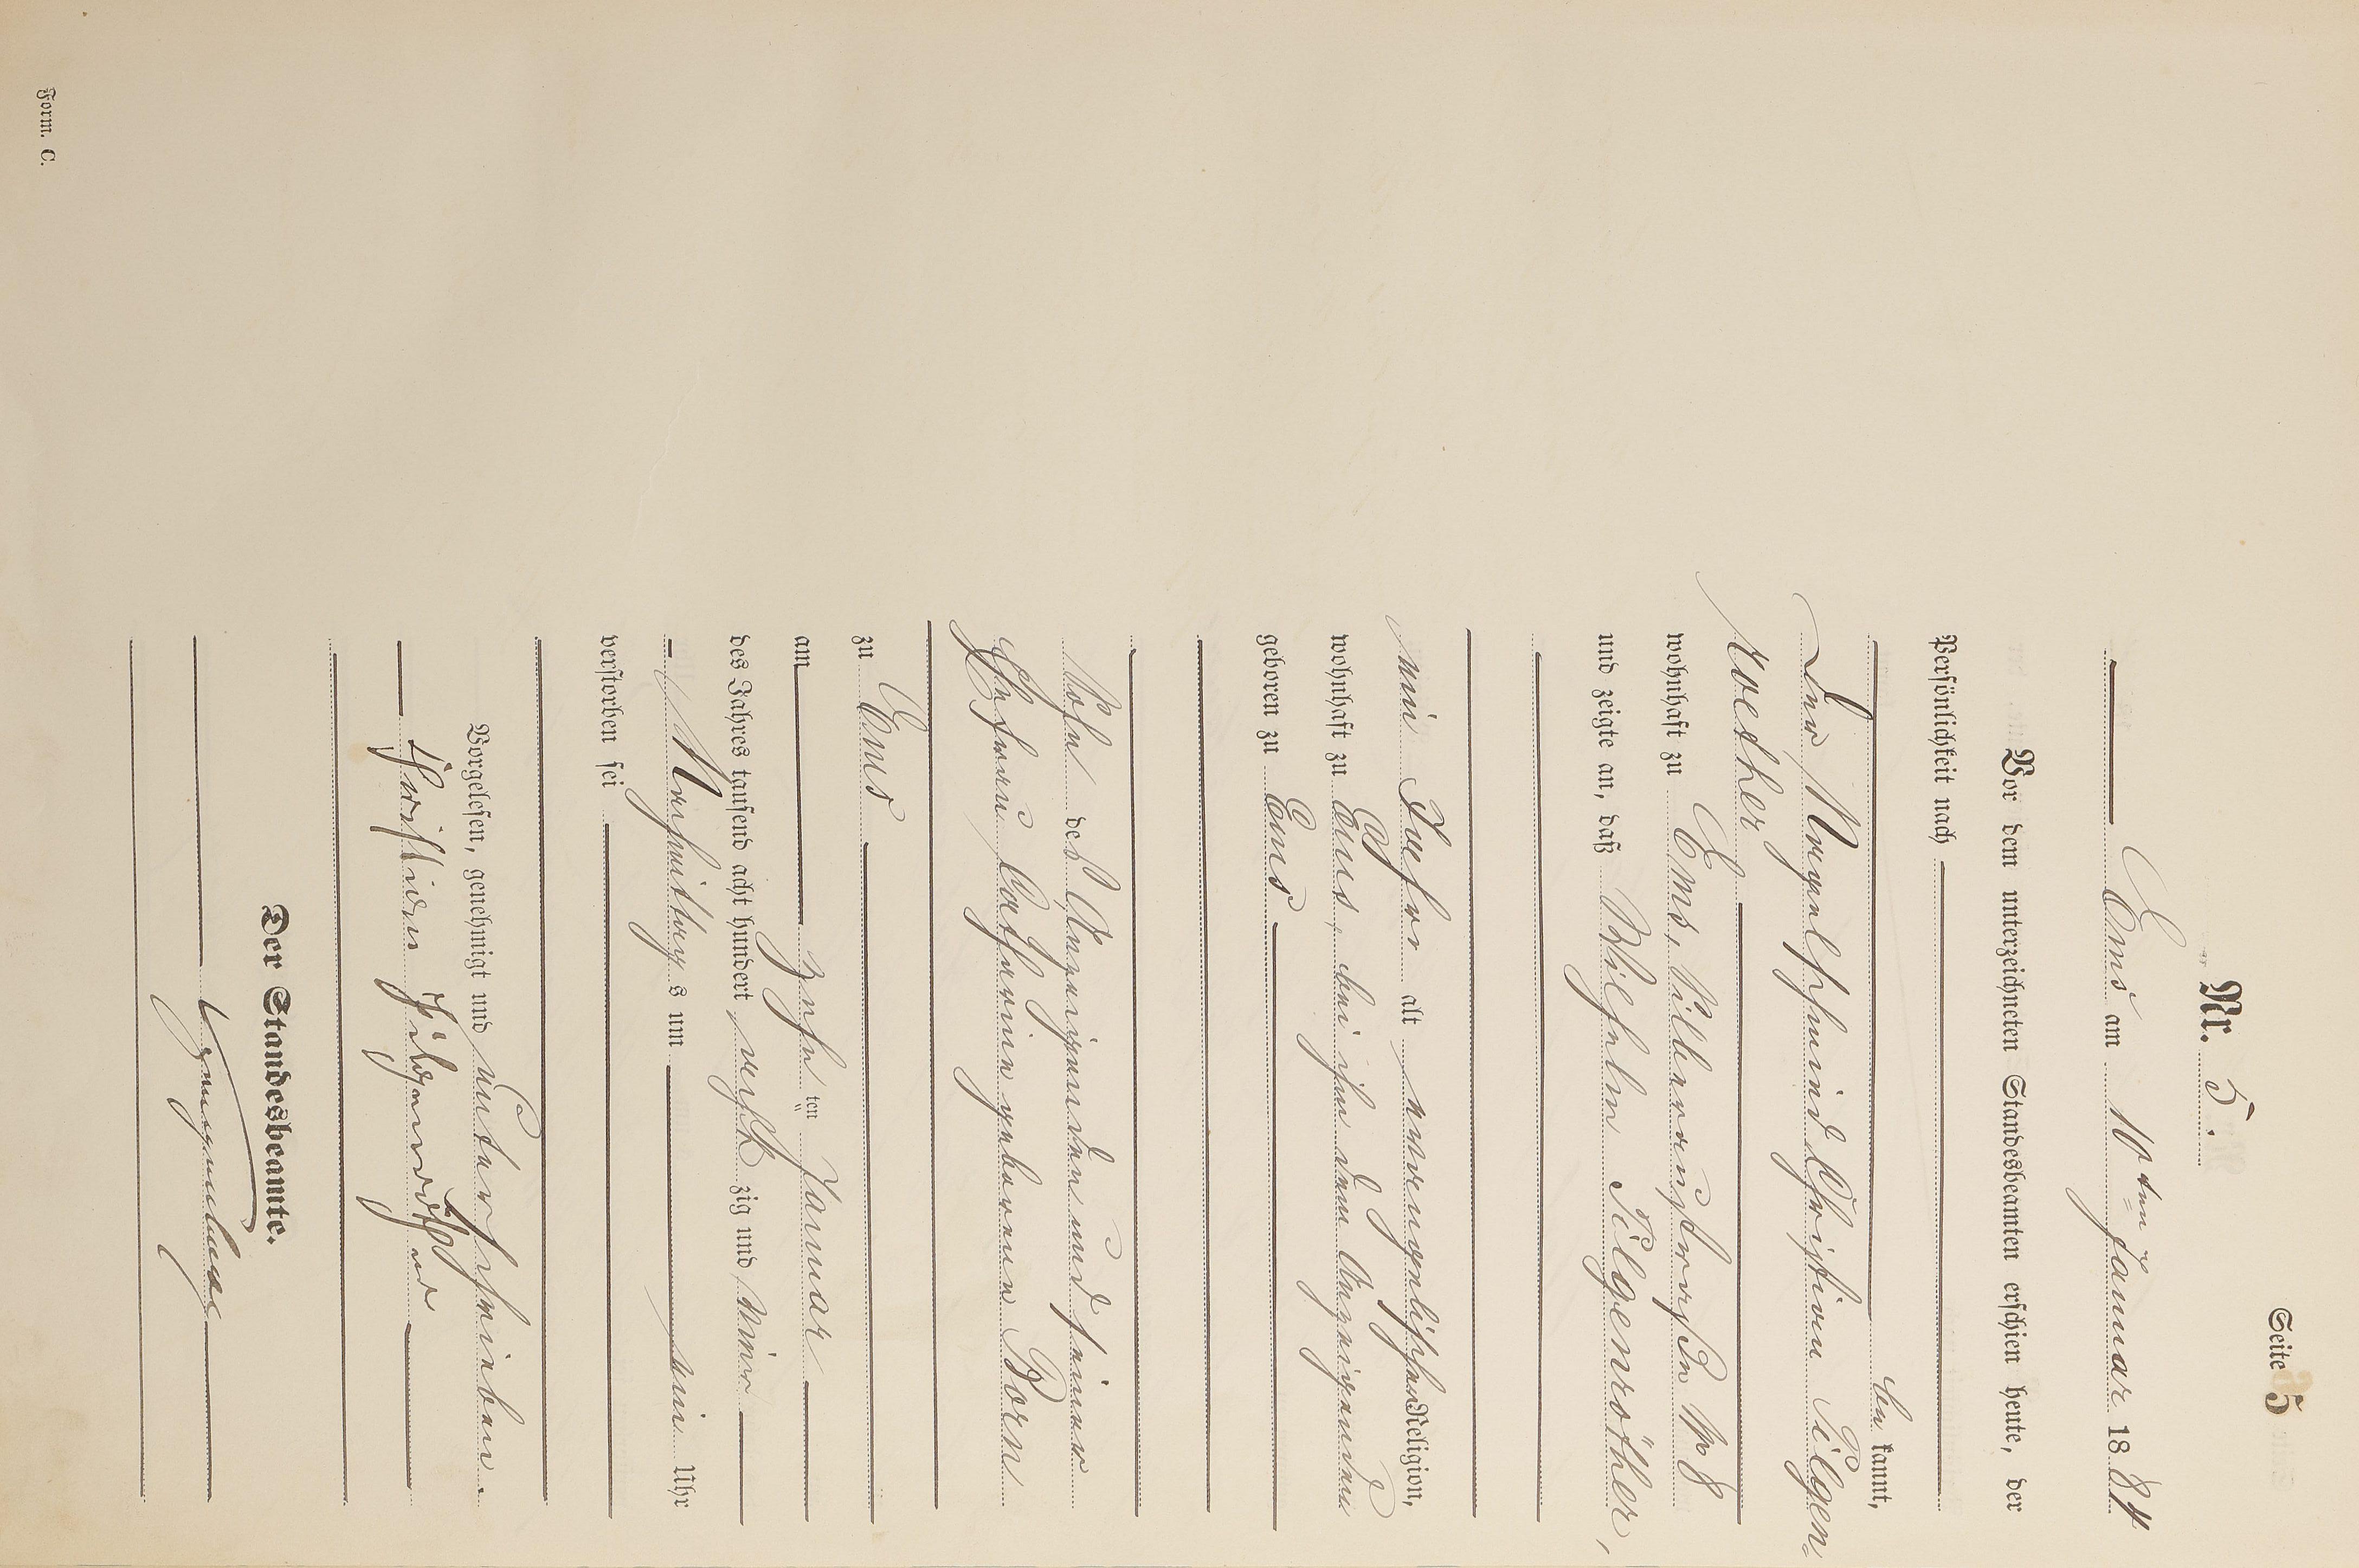 Seite 5
Nr. 5.
Ems am 10ten Januar 1884
Vor dem unterzeichneten Standesbeamten erschien heute, der
Persönlichkeit nach
be kannt,
der Nagelschmied Christian Silgen-
roether
wohnhaft zu Ems, Silberaustraße No 8
und zeigte an, daß Wilhelm Silgenröther,
ein Jahr alt evangelischer Religion,
wohnhaft zu Ems, bei ihm dem Anzeigenden
geboren zu Ems
Sohn des Anzeigenden und seiner
Ehefrau Catharine geborene Born
zu Ems
am zehn ten Januar
des Jahres tausend acht hundert acht zig und vier
Nachmittag s um ein Uhr
verstorben sei
Vorgelesen, genehmigt und unterschrieben.
Christian Silgenröther
Der Standesbeamte.
Form. C.